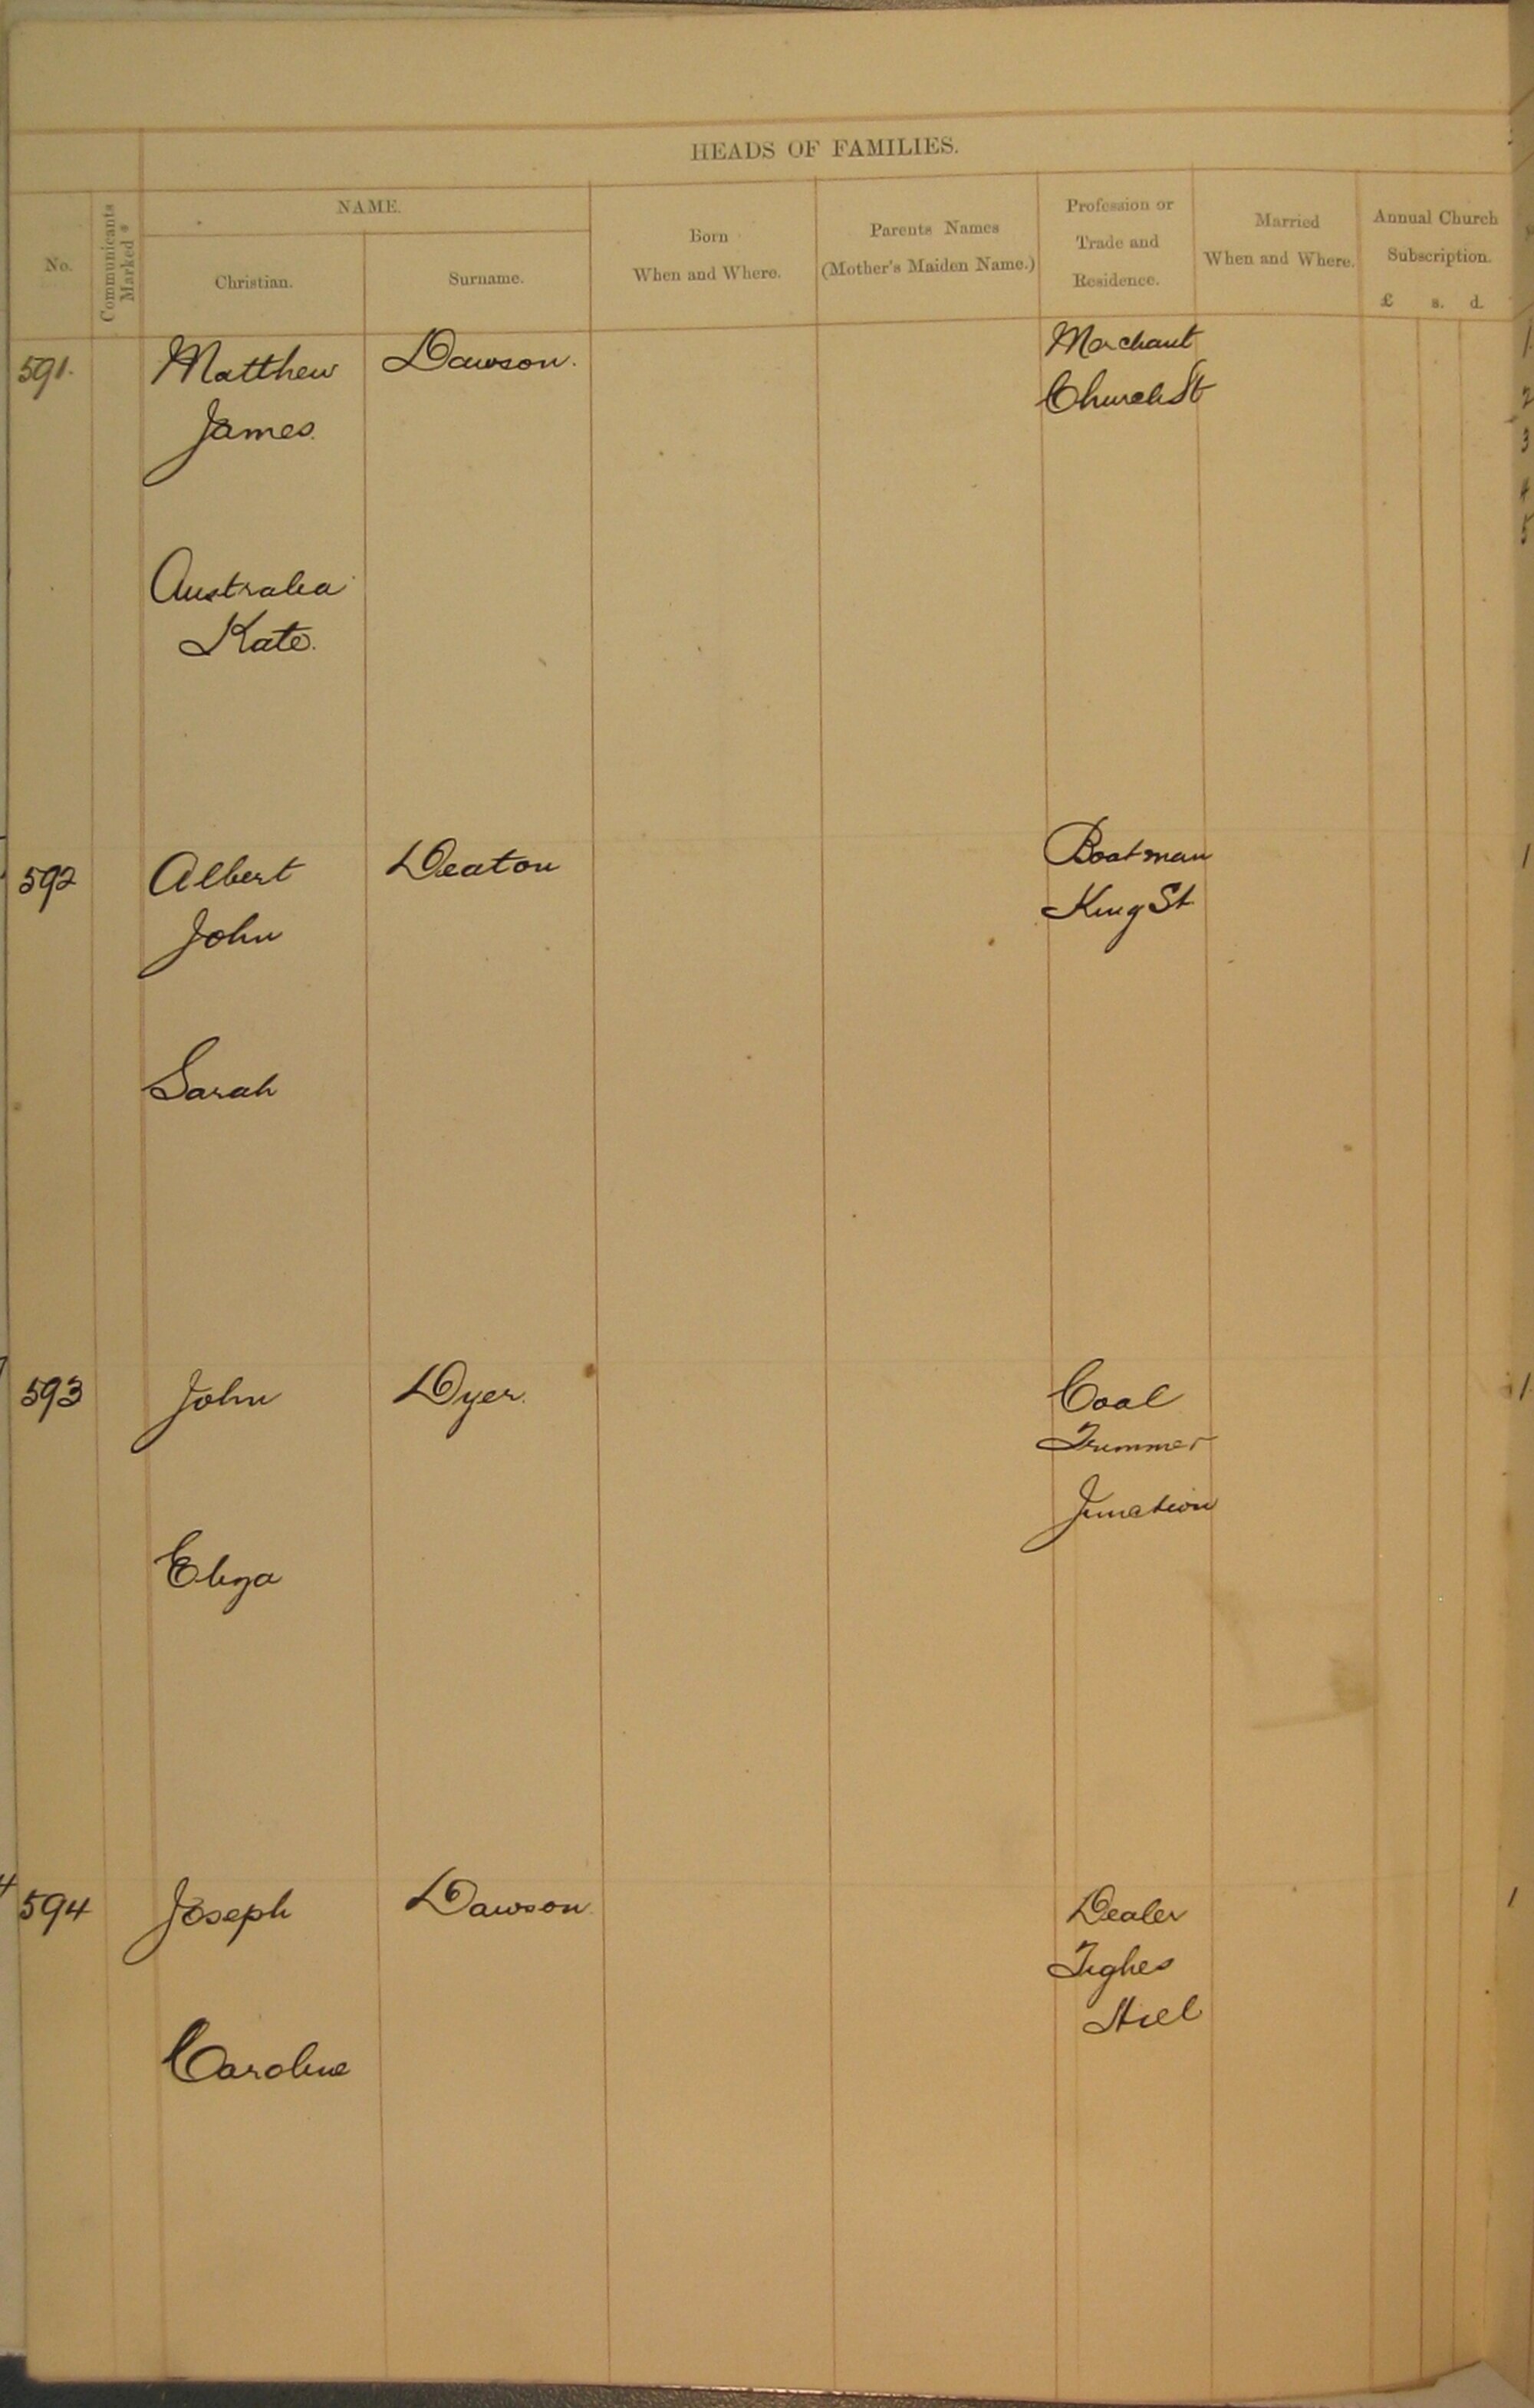 HEADS OF FAMILIES.
No.
Communicants
Marked *
NAME.
Christian.
Surname.
Born
When and Where.
Parents Names
(Mother's Maiden Name.)
Profession or
Trade and
Residence.
Married
When and Where.
Annual Church
Subscription.
£ s. d.
591. Matthew Dawson. Merchant
James. Church St
Australia
Kate.
592 Albert Deaton Boatman
John King St
Sarah
593 John Dyer. Coal
Trimmer
Junction
Eliza
594 Joseph Dawson Dealer
Tighes
Hill
Caroline
1
2
3
4
5
1
1
1